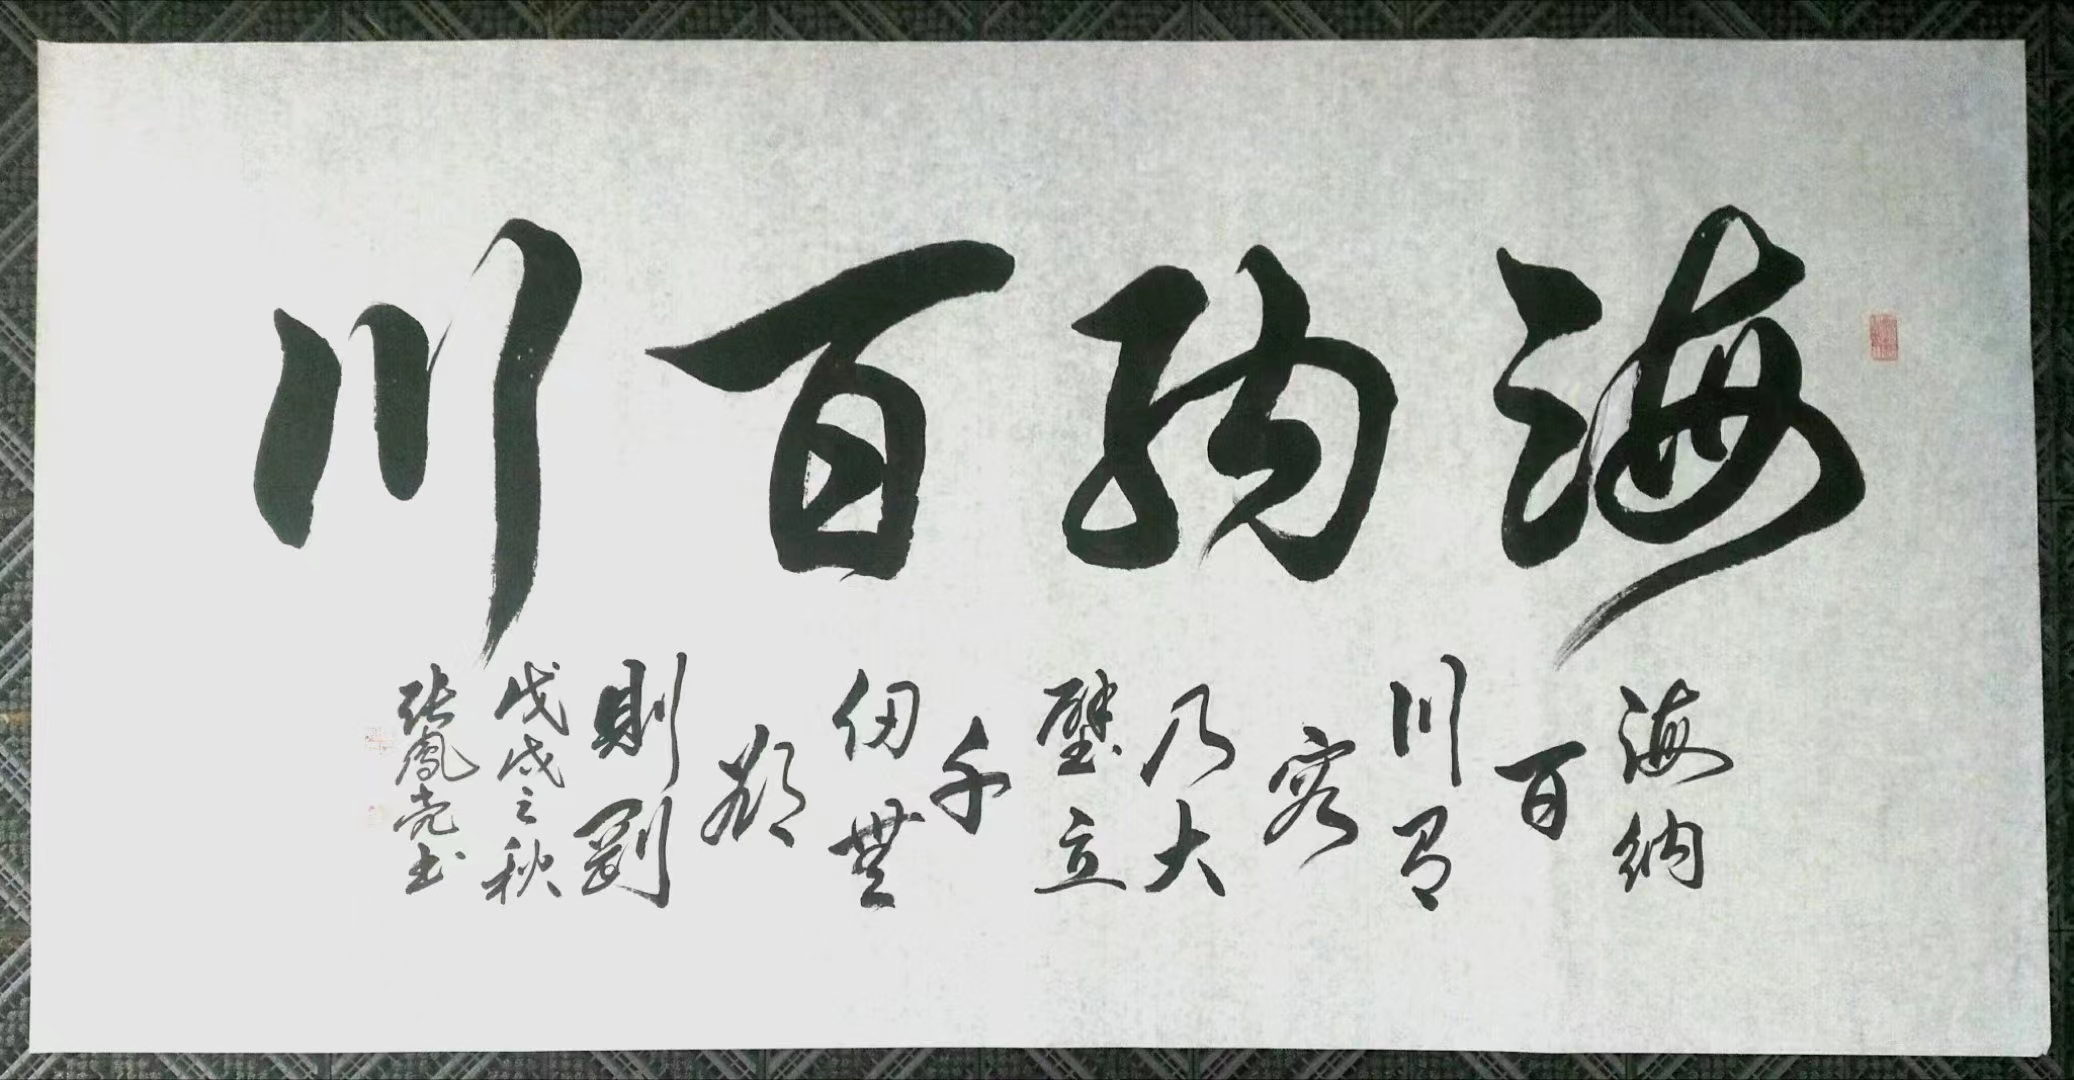 海納百川
海納
百
川有
容
乃大
壁立
千
仞無
欲
則剛
戊戌之秋
張鳳亮书